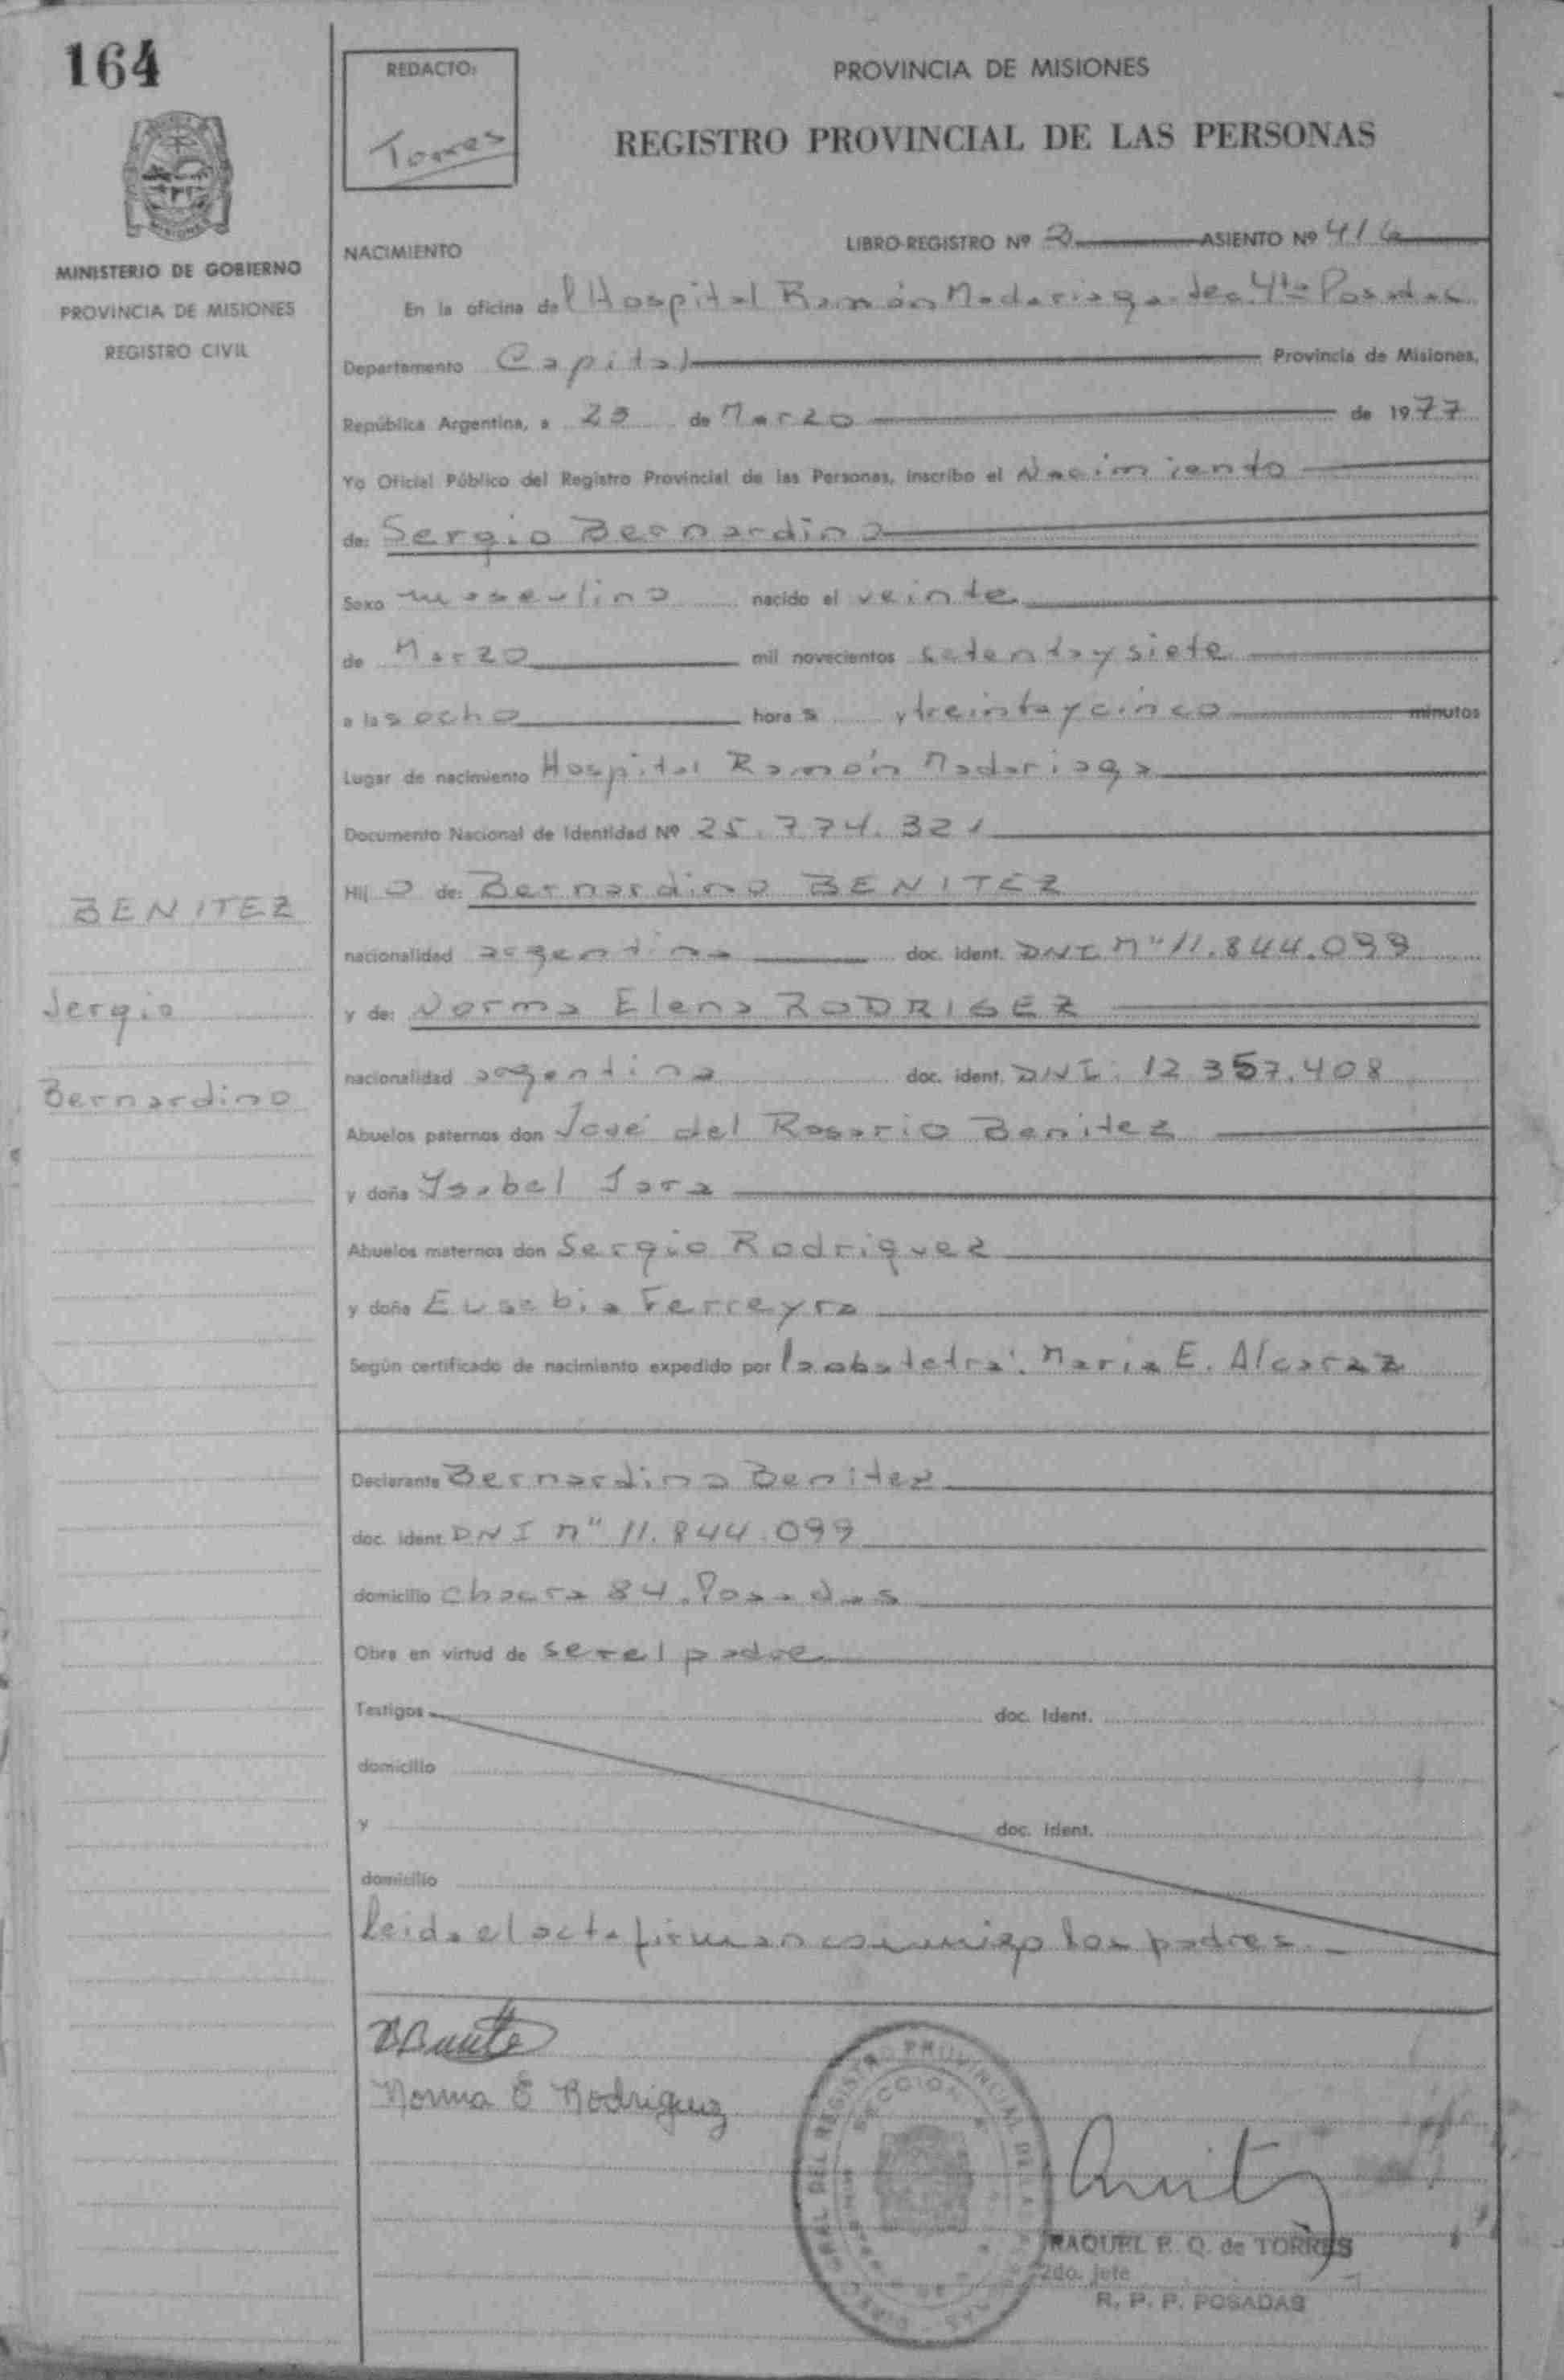 164
REDACTO:
Torres
PROVINCIA DE MISIONES
REGISTRO PROVINCIAL DE LAS PERSONAS
MISIONES
MINISTERIO DE GOBIERNO
PROVINCIA DE MISIONES
REGISTRO CIVIL
NACIMIENTO
LIBRO-REGISTRO Nº 2 ASIENTO Nº 416
En la oficina del Hospital Ramón Madariaga Sec. 4ta Posadas
Departamento Capital Provincia de Misiones,
República Argentina, a 23 de Marzo de 1977
Yo Oficial Público del Registro Provincial de las Personas, inscribo el Nacimiento
de: Sergio Bernardino
Sexo masculino nacido el veinte
de Marzo mil novecientos setenta y siete
a las ocho horas y treinta y cinco minutos
Lugar de nacimiento Hospital Ramón Madariaga
Documento Nacional de Identidad Nº 25.774.321
Hijo de: Bernardino BENITEZ
nacionalidad argentina doc. ident. DNI Nº 11.844.099
y de: Norma Elena RODRIGEZ
nacionalidad argentina doc. ident. DNI. 12.357.408
Abuelos paternos don José del Rosario Benitez
y doña Ysabel Jara
Abuelos maternos don Sergio Rodriguez
y doña Eusebia Ferreyra
Según certificado de nacimiento expedido por la obstetra: Maria E. Alcaraz
Declarante Bernardino Benitez
doc. ident. DNI Nº 11.844.099
domicilio chacra 84. Posadas
Obra en virtud de ser el padre
Testigos doc. Ident.
domicilio
y doc. ident.
domicilio
Leida el acta firman conmigo los padres
BENITEZ
Sergio
Bernardino
Norma E Rodriguez
REGISTRO PROVINCIAL DE LAS
SECCION
RAQUEL E. Q. de TORRES
2do. Jefe
R. P. P. POSADAS